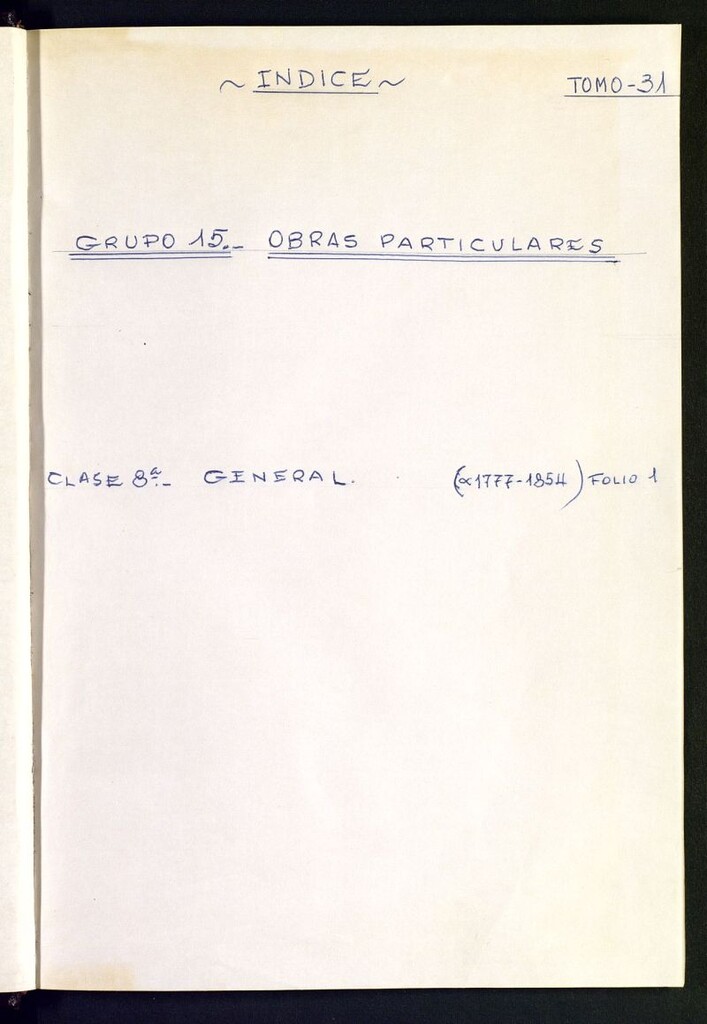 ~ INDICE ~
TOMO-31
GRUPO 15.- OBRAS PARTICULARES
CLASE 8ª.- GENERAL. (∝1777-1854) FOLIO 1